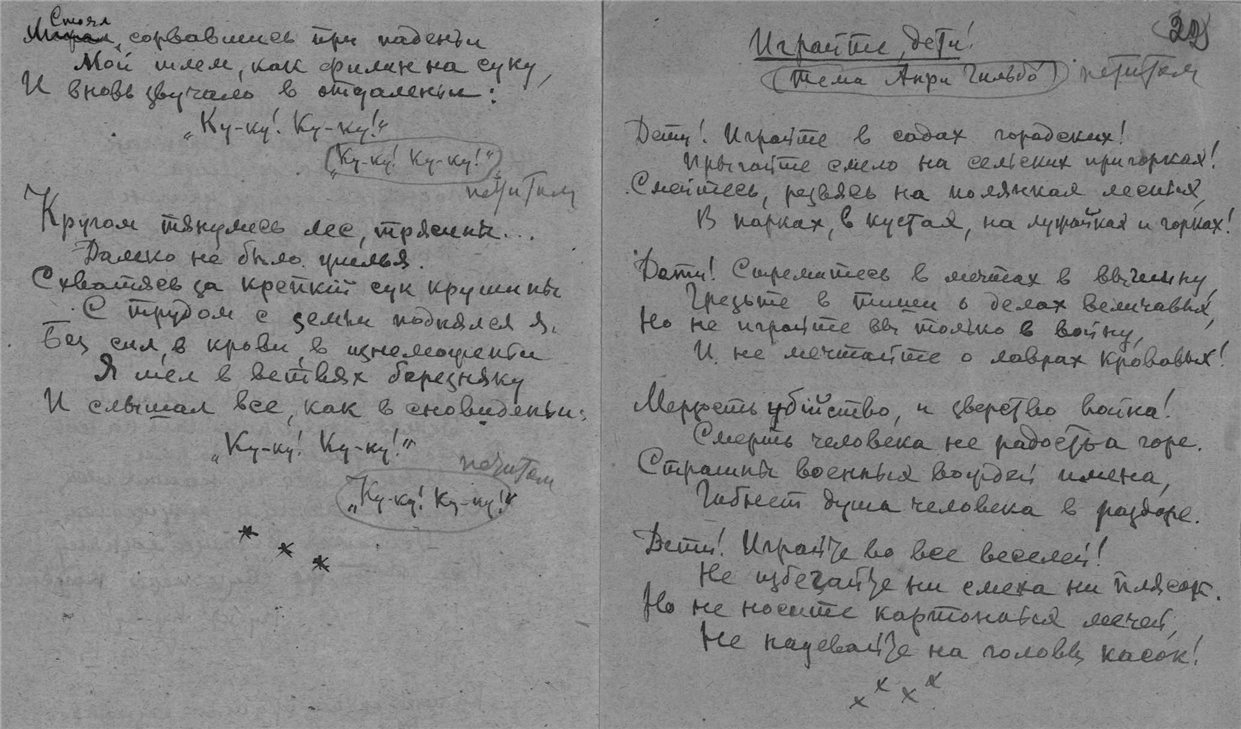 Стоял
, сорвавшись при паденьи
Мой шлем, как филин на суку,
И вновь звучало в отдаленьи:
„Ку-ку! Ку-ку!“
„Ку-ку! Ку-ку!“
петитом
Кругом тянулись лес, трясины...
Далеко не было жилья.
Схватясь за крепкий сук крушины
С трудом с земли поднялся я.
Без сил, в крови, в изнеможеньи
Я шел в ветвях березняку
И слышал все, как в сновиденьи:
„Ку-ку! Ку-ку!“
петитом
„Ку-ку! Ку-ку!“
22
Играйте, дети!
(тема Анри Гильбо) петитом
Дети! Играйте в садах городских!
Прыгайте смело на сельских пригорках!
Смейтесь, резвясь на полянках лесных,
В парках, в кустах, на лужайках и горках!
Дети! Стремитесь в мечтах в вышину,
Грезьте в тиши о делах величавых,
Но не играйте вы только в войну,
И не мечтайте о лаврах кровавых!
Мерзость убийство, и зверство война!
Смерть человека не радость а горе.
Страшны военных вождей имена,
Гибнет душа человека в раздоре.
Дети! Играйте во все веселей!
Не избегайте ни смеха ни плясок.
Но не носите картонных мечей,
Не надевайте на головы касок!